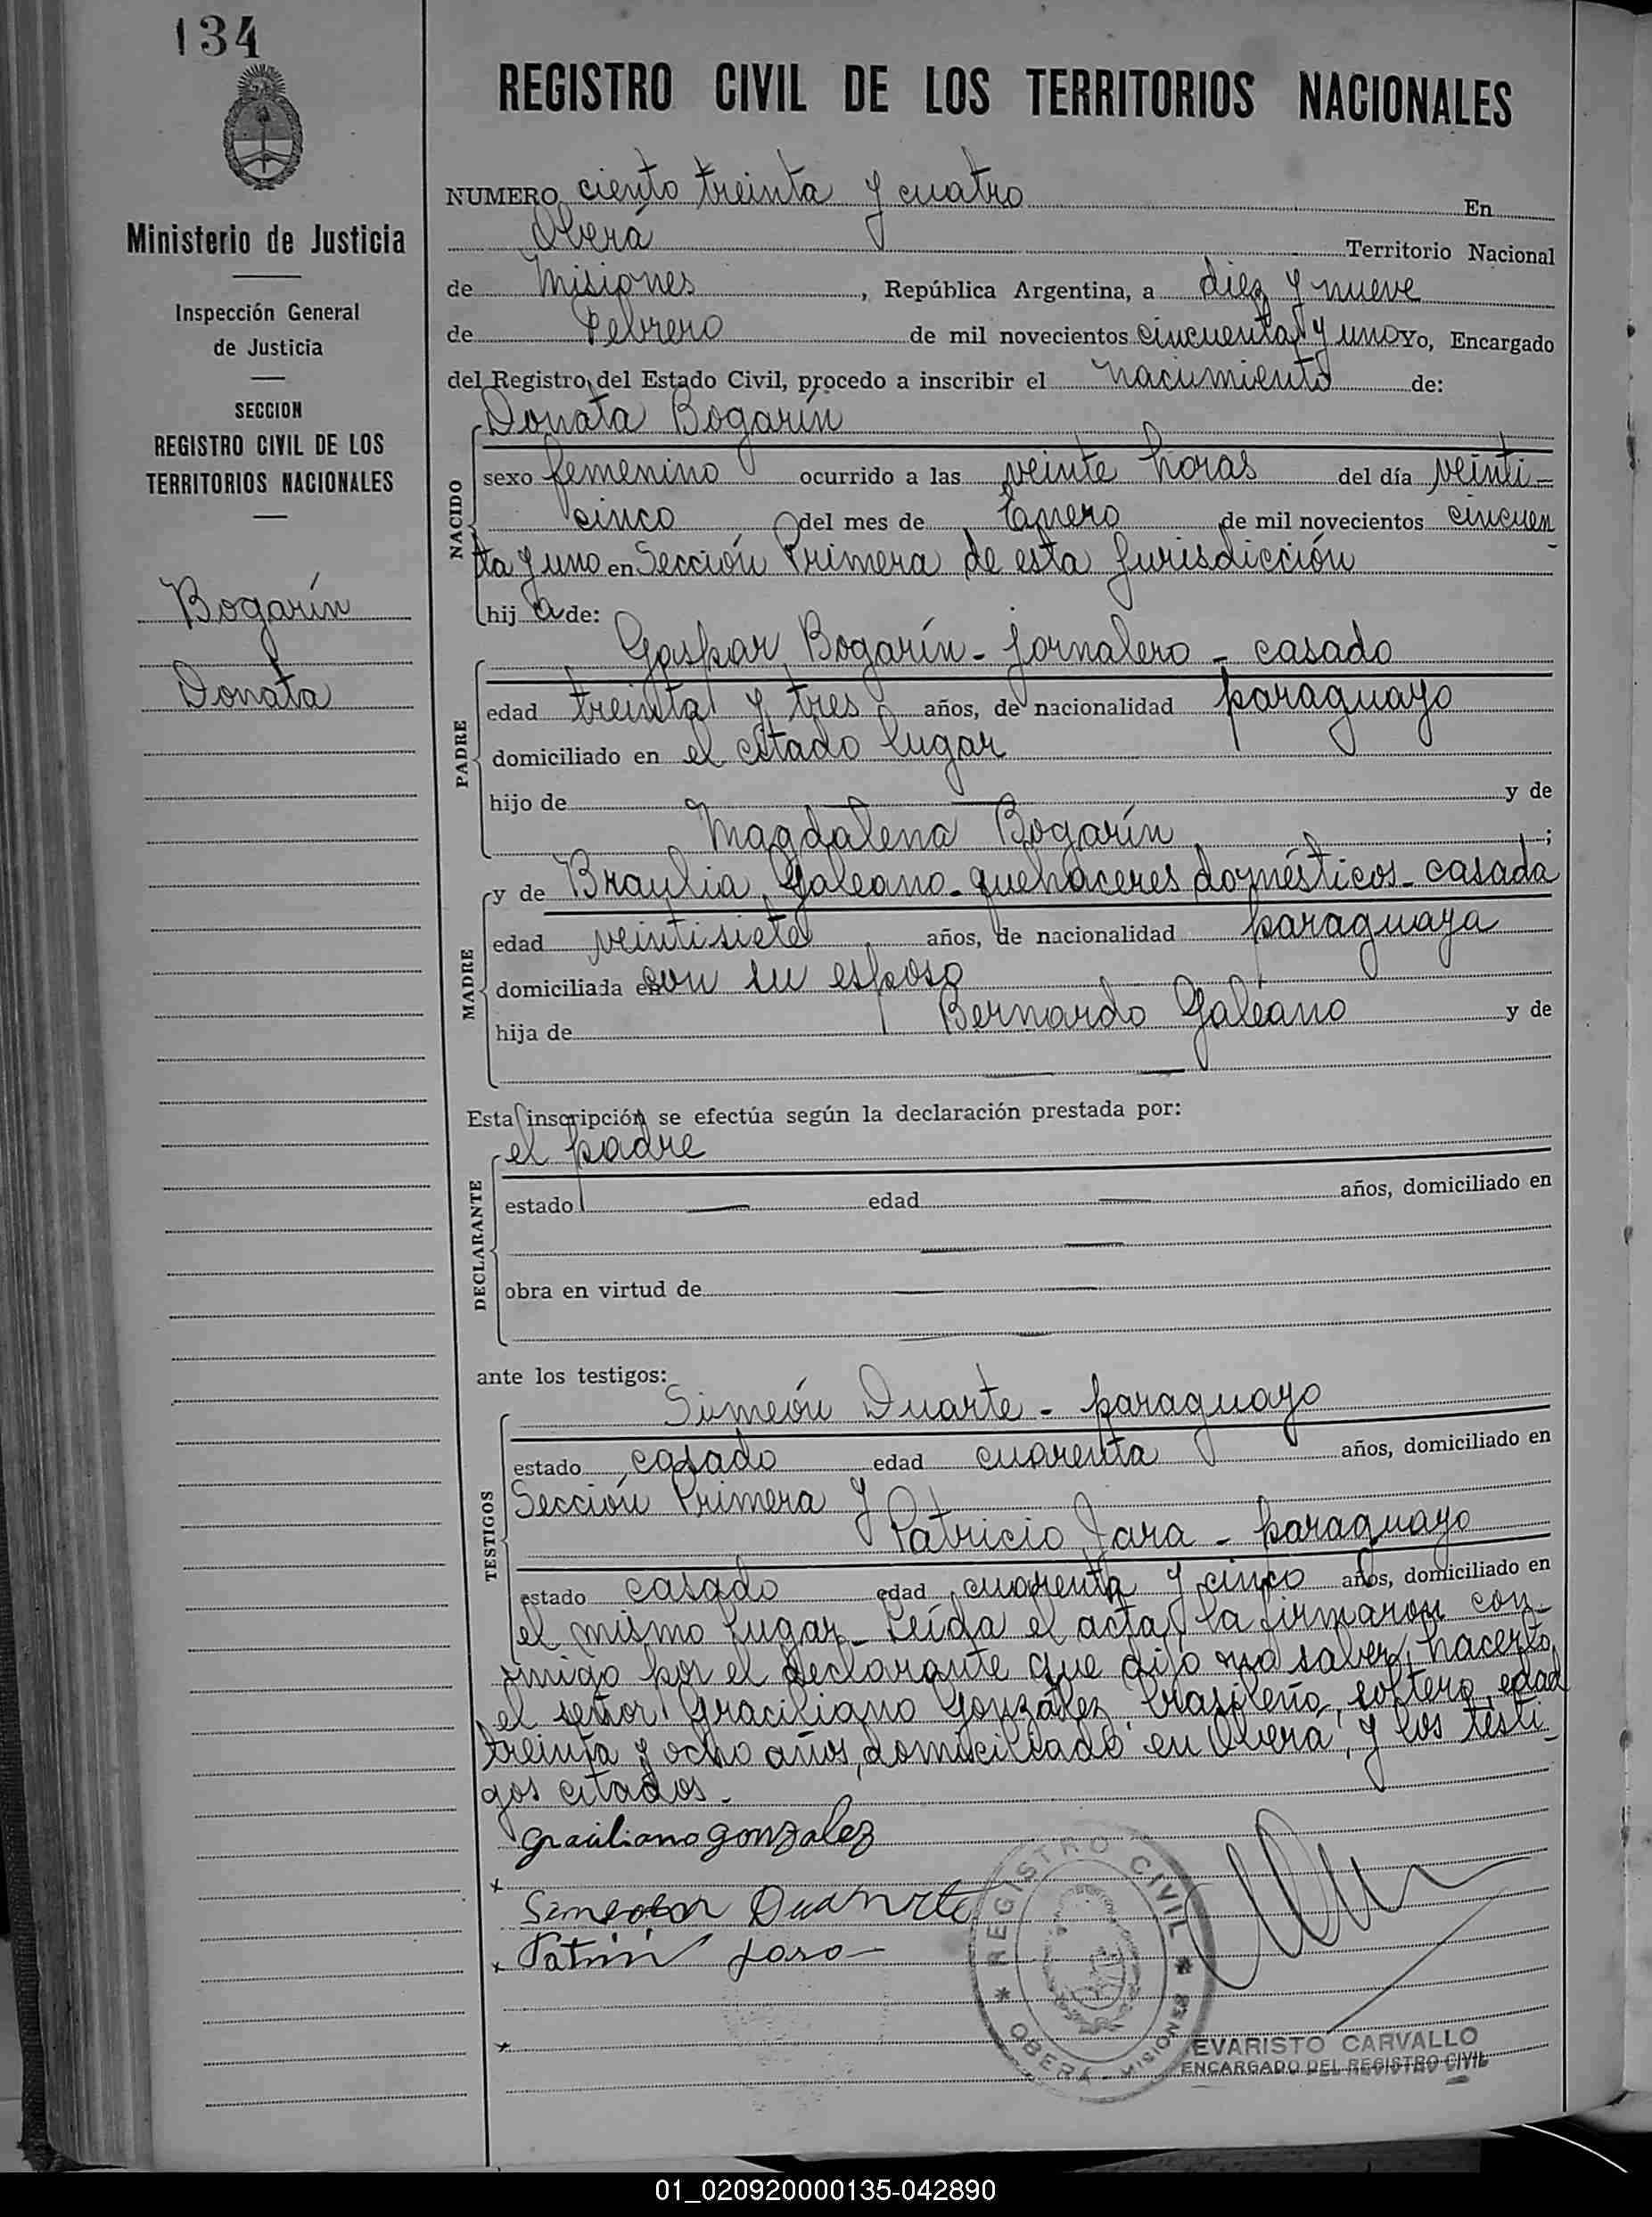 134
Ministerio de Justicia
Inspección General
de Justicia
SECCION
REGISTRO CIVIL DE LOS
TERRITORIOS NACIONALES
Bogarín
Donata
REGISTRO CIVIL DE LOS TERRITORIOS NACIONALES
NUMERO ciento treinta y cuatro En
Oberá Territorio Nacional
de Misiones, República Argentina, a diez y nueve
de Febrero de mil novecientos cincuenta y uno Yo, Encargado
del Registro del Estado Civil, procedo a inscribir el nacimiento de:
NACIDO
Donata Bogarín
sexo femenino ocurrido a las veinte horas del día veinti-
cinco del mes de Enero de mil novecientos cincuen-
ta y uno en Sección Primera de esta Jurisdicción
hija de:
PADRE
Gaspar Bogarín - jornalero - casado
edad treinta y tres años, de nacionalidad paraguayo
domiciliado en el citado lugar
hijo de y de
Magdalena Bogarín;
MADRE
y de Braulia Galeano - quehaceres domésticos - casada
edad veintisiete años, de nacionalidad paraguaya
domiciliada con su esposo
hija de Bernardo Galeano y de
Esta inscripción se efectúa según la declaración prestada por:
DECLARANTE
el padre
estado edad años, domiciliado en
obra en virtud de
ante los testigos:
TESTIGOS
Simeón Duarte - paraguayo
estado casado edad cuarenta años, domiciliado en
Sección Primera y
Patricio Jara - paraguayo
estado casado edad cuarenta y cinco años, domiciliado en
el mismo lugar - Leída el acta, la firmaron con-
migo por el declarante que dijo no saber hacerlo,
el señor Graciliano González, brasileño, soltero, edad
treinta y ocho años, domiciliado en Oberá, y los testi-
gos citados.
Graciliano Gonzalez
x
Simeon Duarte
x
x
REGISTRO CIVIL
OBERÁ - MISIONES
EVARISTO CARVALLO
ENCARGADO DEL REGISTRO CIVIL
01_020920000135-042890